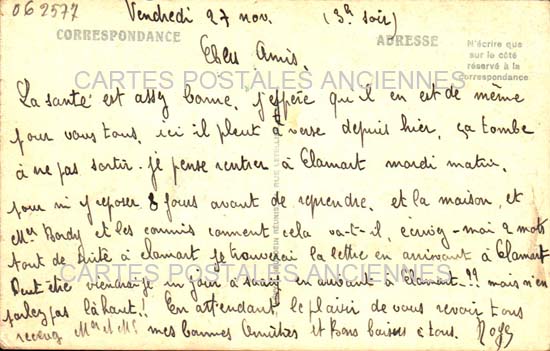 062577
Vendredi 27 nov. (3h soir)
CORRESPONDANCE
ADRESSE
N'écrire que
sur le côté
réservé à la
correspondance
Chers Amis.
CARTES POSTALES ANCIENNES
La santé est assez bonne, j'espère qu'il en est de même
pour vous tous, ici il pleut à verse depuis hier, ça tombe
à ne pas sortir. je pense rentrer à Clamart mardi matin,
pour m'y reposer 8 jours avant de reprendre, et la maison, et
Mr Bordy et les commis comment cela va-t-il, écrivez-moi 2 mots
tout de suite à Clamart je trouverai la lettre en arrivant à Clamart
CARTES POSTALES ANCIENNES
Peut être viendrai-je un jour à en arrivant à Clamart!! mais n'en
parlez pas là haut!! En attendant, le plaisir de vous revoir tous
recevez Mr et Me mes bonnes amitiés et bons baisers à tous. Roger